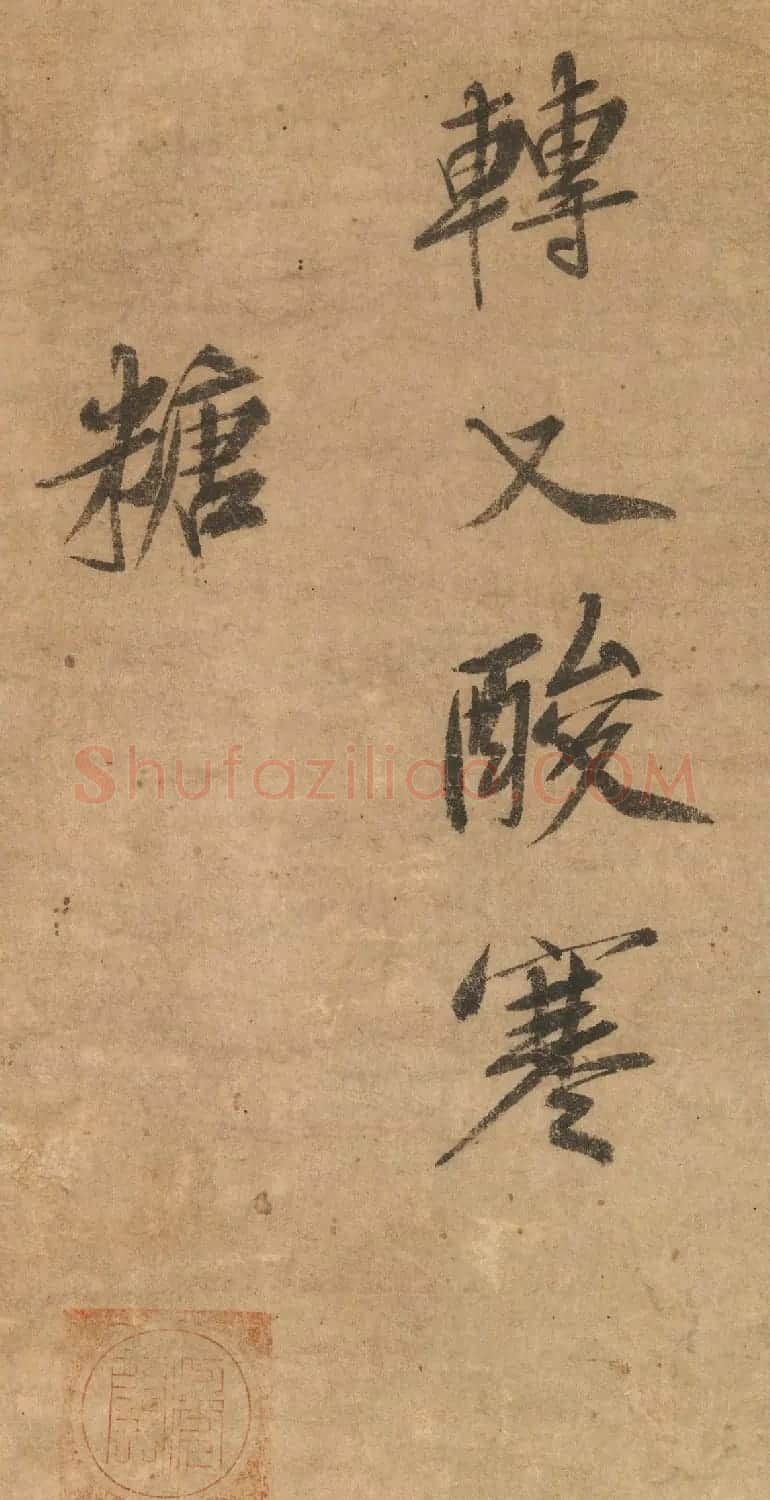 轉又酸寒
糖
Shufaziliao.COM